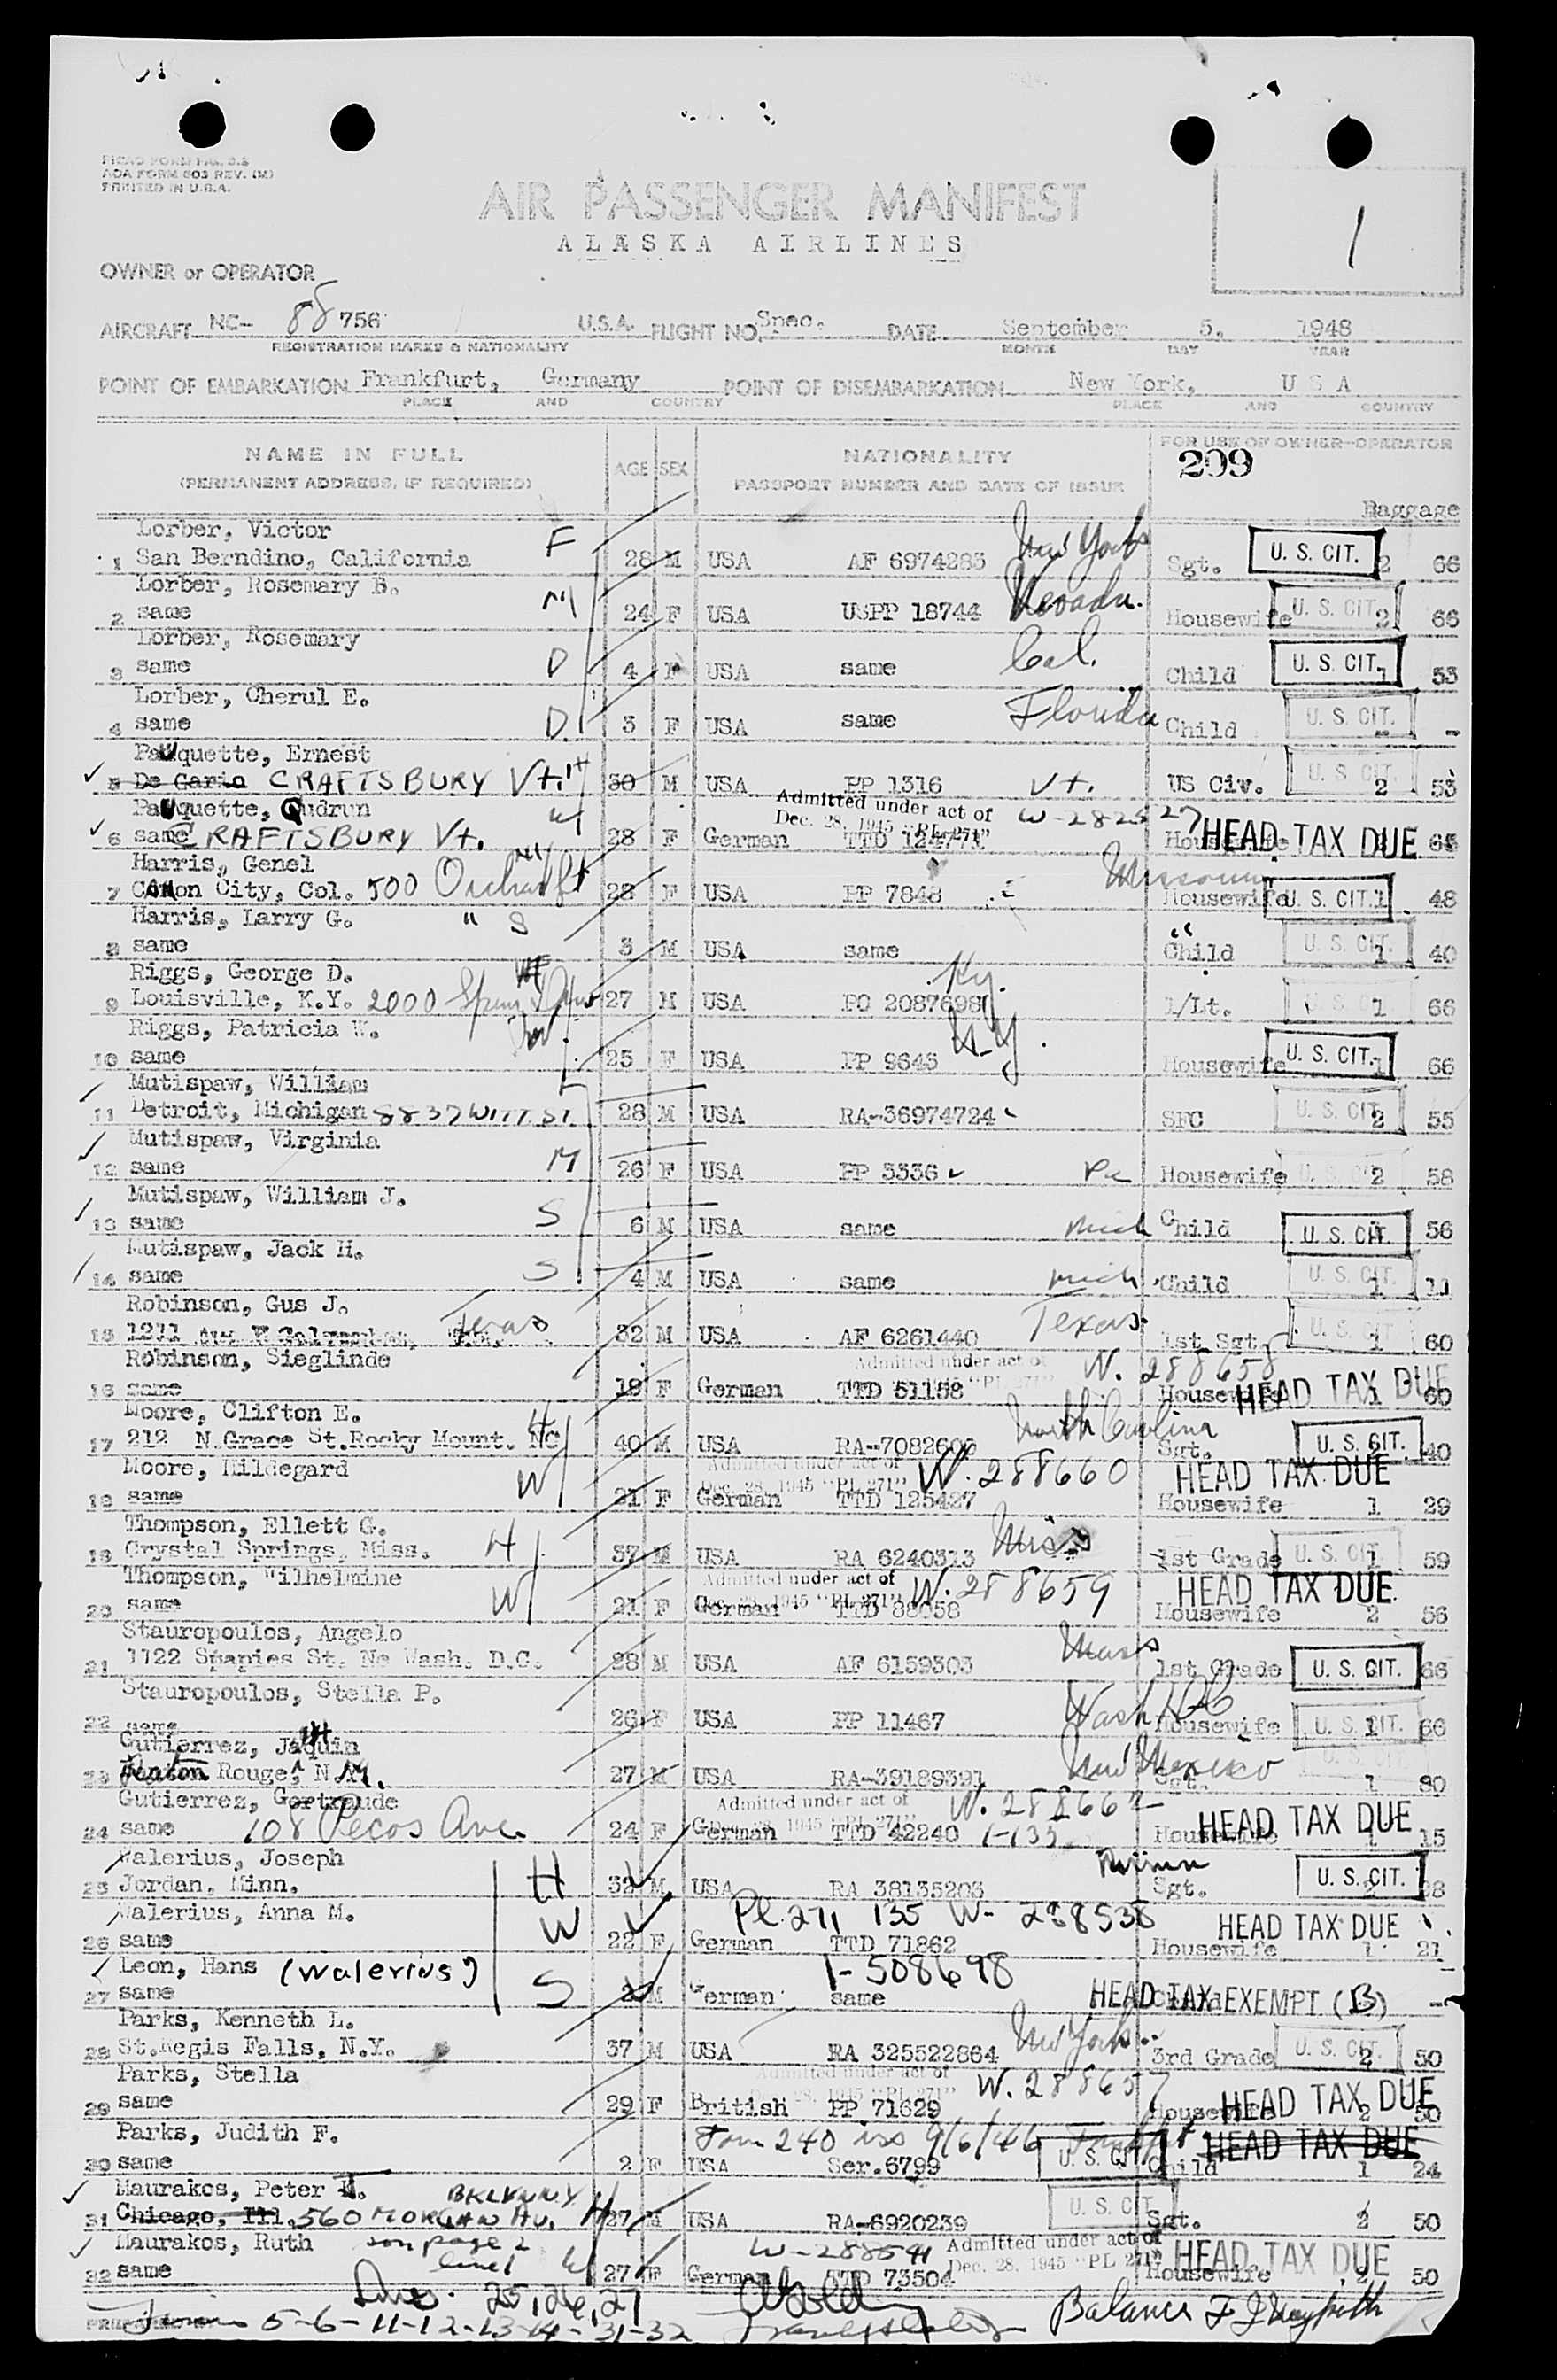 AIR PASSENGER MANIFEST
ALASKA AIRLINES
1
OWNER or OPERATOR
AIRCRAFT NC- 88756 U.S.A. FLIGHT NO. Spec. DATE September 5, 1948
REGISTRATION MARKS & NATIONALITY MONTH DAY YEAR
POINT OF EMBARKATION Frankfurt, Germany POINT OF DISEMBARKATION New York, U S A
PLACE AND COUNTRY PLACE AND COUNTRY
NAME IN FULL AGE SEX NATIONALITY FOR USE OF OWNER-OPERATOR
(PERMANENT ADDRESS, IF REQUIRED) PASSPORT NUMBER AND DATE OF ISSUE 209
Baggage
Lorber, Victor
1 San Berndino, California F 28 M USA AF 6974283 New York Sgt. U. S. CIT. 2 66
Lorber, Rosemary B.
2 same M 24 F USA USPP 18744 Nevada. Housewife U. S. CIT. 2 66
Lorber, Rosemary
3 same D 4 F USA same Cal. Child U. S. CIT. 1 53
Lorber, Cherul E.
4 same D. 3 F USA same Florida Child U. S. CIT. - -
Pauquette, Ernest
5 De Garia CRAFTSBURY Vt. H 30 M USA PP 1316 Vt. US Civ. U. S. CIT. 2 53
Pauquette, Gudrun Admitted under act of Dec. 28, 1945 "PL 271"
6 same CRAFTSBURY Vt. W 28 F German TTD 124771 Housewife HEAD TAX DUE 65
Harris, Genel
7 Canon City, Col. 500 28 F USA PP 7848 Missouri Housewife U. S. CIT. 1 48
Harris, Larry G. " S
8 same 3 M USA same " Child U. S. CIT. 1 40
Riggs, George D.
9 Louisville, K.Y. 2000 27 M USA PO 2087698 Ky. 1/Lt. 1 66
Riggs, Patricia W.
10 same 25 F USA PP 9645 Housewife U. S. CIT. 1 66
Mutispaw, William
11 Detroit, Michigan 8837 WITT ST. 28 M USA RA-36974724 SFC U. S. CIT. 2 55
Mutispaw, Virginia
12 same M 26 F USA PP 3336 Pa Housewife 2 58
Mutispaw, William J.
13 same S 6 M USA same Mich Child U. S. CIT. 56
Mutispaw, Jack H.
14 same S 4 M USA same Mich. Child U. S. CIT. 1 11
Robinson, Gus J.
15 1211 Texas 32 M USA AF 6261440 Texas 1st Sgt U. S. CIT. 1 60
Robinson, Sieglinde Admitted under act of W. 288658
16 same 19 F German TTD 51158 Housewife HEAD TAX DUE 1 60
Moore, Clifton E. H
17 212 N.Grace St.Rocky Mount. NC 40 M USA RA-7082605 North Carolina Sgt. U. S. CIT. 40
Moore, Hildegard Admitted under act of Dec. 28, 1945 "PL 271" W. 288660 HEAD TAX DUE
18 same W 21 F German TTD 125427 Housewife 1 29
Thompson, Ellett G.
19 Crystal Springs, Miss. H 37 M USA RA 6240313 Miss 1st Grade U. S. CIT. 1 59
Thompson, Wilhelmine Admitted under act of W. 288659 HEAD TAX DUE.
20 same W 21 F German TTD 88058 Housewife 2 56
Stauropoulos, Angelo
21 1122 Spapies St. Ne Wash. D.C. 28 M USA AF 6159303 Mass 1st Grade U. S. CIT. 66
Stauropoulos, Stella P.
22 same 26 F USA PP 11467 Wash DC Housewife U. S. CIT. 1 66
Gutierrez, Jaquin
23 Rouge, N.M. 27 M USA RA-39189391 New Mexico Sgt. 1 80
Gutierrez, Gertraude Admitted under act of W. 288662
24 same 108 Pecos Ave. 24 F German TTD 42240 1-135 Housewife HEAD TAX DUE 1 15
Walerius, Joseph
25 Jordan, Minn. H 32 M USA RA 38135203 Minn Sgt. U. S. CIT. 38
Walerius, Anna M. PL. 271 135 W- 288538 HEAD TAX DUE
26 same W 22 F German TTD 71862 Housewife 1 21
Leon, Hans (Walerius) 1-508698
27 same S 2 M German same HEAD TAX EXEMPT (B) -
Parks, Kenneth L.
28 St.Regis Falls, N.Y. 37 M USA RA 325522864 New York 3rd Grade U. S. CIT. 2 50
Parks, Stella Admitted under act of W. 288657
29 same 29 F British PP 71629 Housewife HEAD TAX DUE 2 50
Parks, Judith F. Form 240 iss 9/6/46 Frankfurt HEAD TAX DUE
30 same 2 F USA Ser.6799 U. S. CIT. Child 1 24
Maurakos, Peter BKLYN N.Y.
31 Chicago, Ill. 560 MORGAN AV. H 27 M USA RA-6920239 U. S. CIT. Sgt. 2 50
Maurakos, Ruth son page 2 line 1 W-288541 Admitted under act of Dec. 28, 1945 "PL 271" HEAD TAX DUE
32 same W 27 F German TTD 73504 Housewife 2 50
Lines. 25,26,27 Balance
5-6-11-12-13-14-31-32